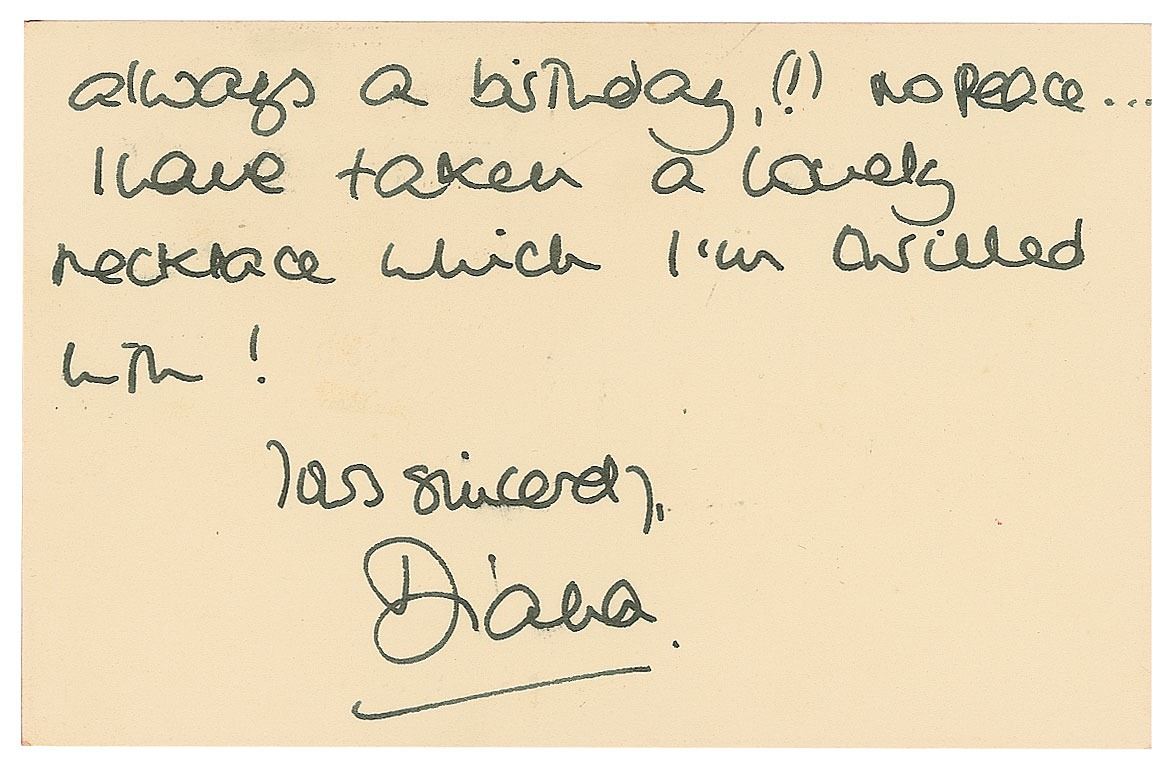 always a birthday,(!) no peace...
I have taken a lovely
necklace which I'm thrilled
with!
Yours sincerely,
Diana.